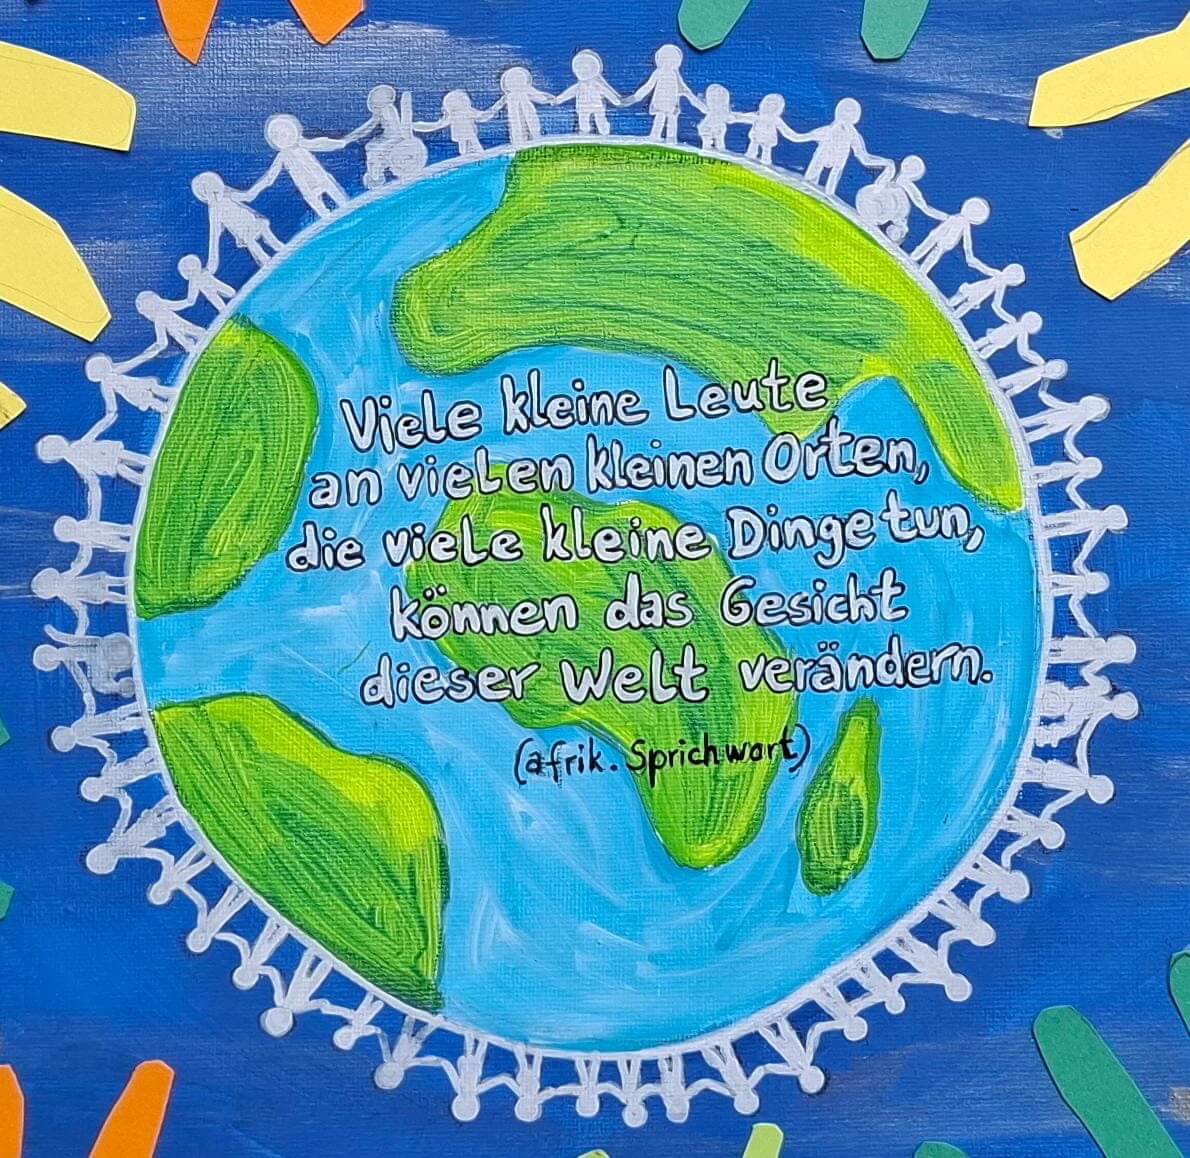 Viele kleine Leute
an vielen kleinen Orten,
die viele kleine Dinge tun,
können das Gesicht
dieser Welt verändern.
(afrik. Sprichwort)